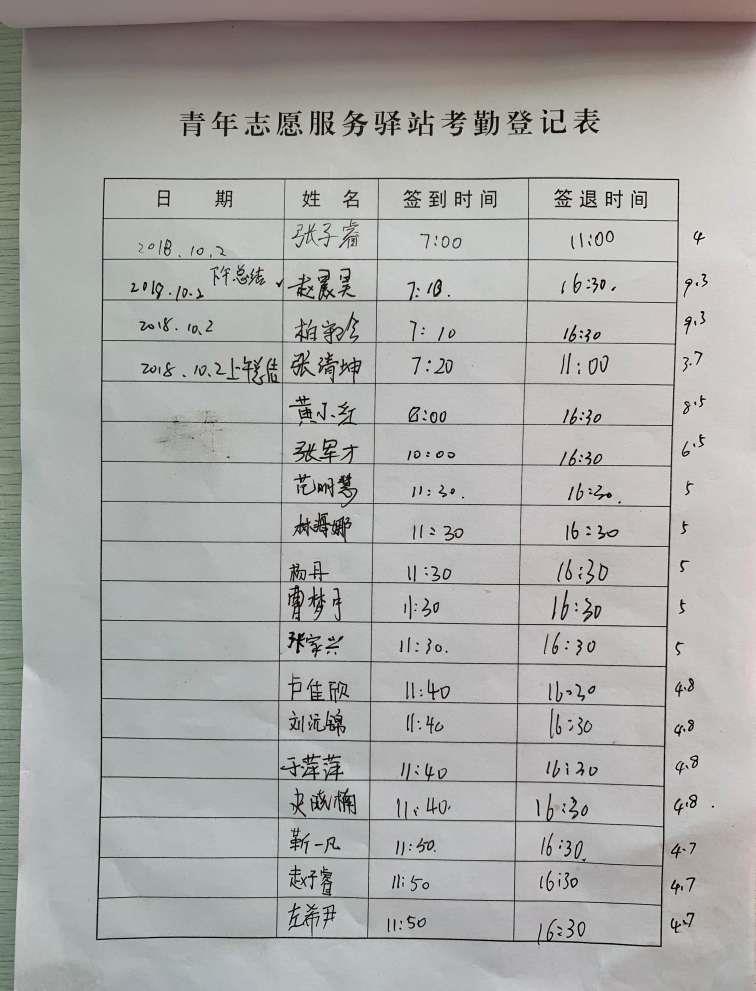 青年志愿服务驿站考勤登记表
日 期 姓 名 签到时间 签退时间
2018.10.2 张子睿 7:00 11:00 4
2018.10.2 下午总结 赵晨昊 7:18. 16:30. 9.3
2018.10.2 柏 7:10 16:30 9.3
2018.10.2上午总结 张清坤 7:20 11:00 3.7
黄小红 8:00 16:30 8.5
张军才 10:00 16:30 6.5
范明慧 11:30. 16:30. 5
林海娜 11:30 16:30 5
杨丹 11:30 16:30 5
曹梦月 11:30 16:30 5
张家兴 11:30. 16:30 5
卢佳欣 11:40 16:30 4.8
刘沅锦 11:40 16:30 4.8
于萍萍 11:40 16:30 4.8
史晓楠 11:40. 16:30 4.8
靳一凡 11:50. 16:30. 4.7
赵子睿 11:50 16:30 4.7
左希尹 11:50 16:30 4.7